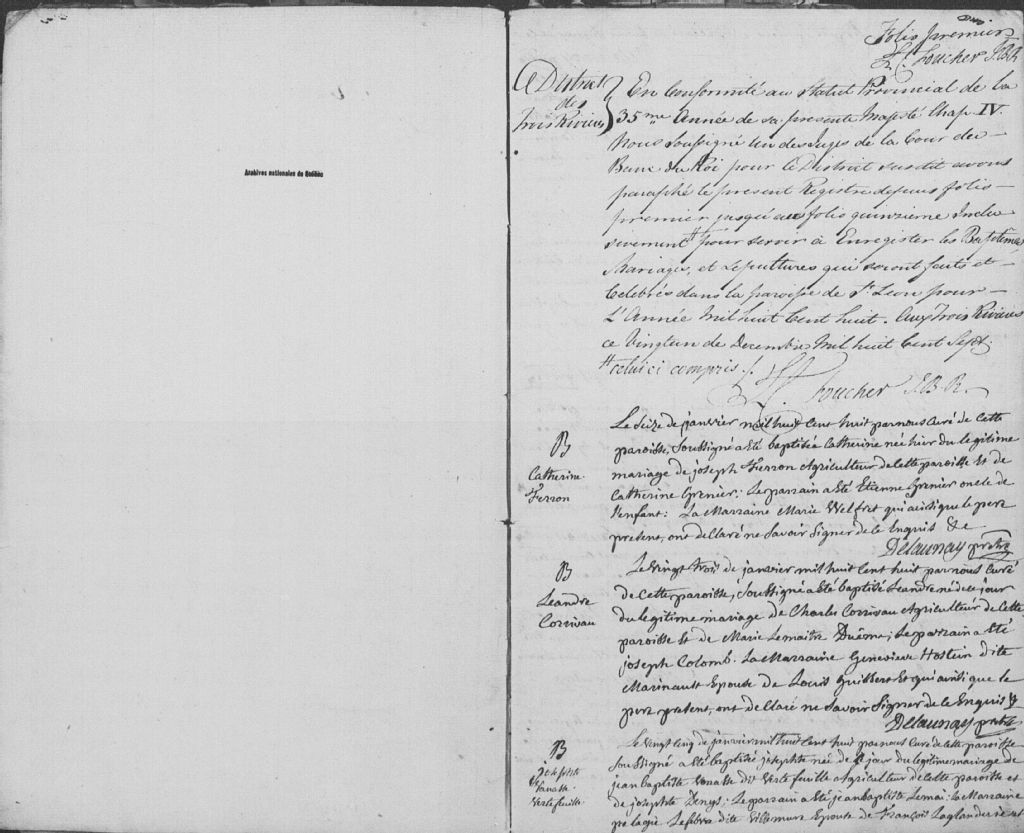 Archives nationales du Québec
Folio premier
L.C. Foucher J.B.R
District
des
trois Rivieres
En Conformité au Statut Provincial de la
35me Année de sa presente Majesté Chap. IV.
Nous Soussigné un des Juges de la Cour du
Banc du Roi pour le District susdit avons
paraphé le present Registre depuis folio
premier jusqu'au folio quinzieme Inclu
sivement # pour servir à Enregister les Baptêmes,
Mariages, et Sepultures qui seront faits et
Celebrés dans la paroisse de St Leon pour
L'Année Mil huit Cent huit. Aux Trois Rivieres
ce Vingt un de Decembre Mil huit Cent Sept.
# celui ci compris.
L.C. Foucher J.B.R.
B
Catherine
Ferron
Le Seize de janvier mil huit Cent huit par nous Curé de Cette
paroisse, Soussigné a Eté baptisée Catherine née hier du legitime
mariage de joseph Ferron Agriculteur de Cette paroisse Et de
Catherine Grenier: Le parrain a Eté Etienne Grenier oncle de
l'enfant: La Marraine Marie Welfret qui ainsi que le pere
present, ont declaré ne Savoir Signer de le Enquis &c
Delaunay prêtre
B
Leandre
Corrivau
Le vingt trois de janvier mil huit Cent huit par nous Curé
de Cette paroisse, Soussigné a Eté baptisé Leandre né de le jour
du legitime mariage de Charles Corrivau Agriculteur de Cette
paroisse Et de Marie Lemaitre Duême; Le parrain a Eté
joseph Colomb. La Marraine Genevieve Hostein dite
Marinault Epouse de Louis Guilbert Et qui ainsi que le
pere present, ont declaré ne Savoir Signer de le Enquis &
Delaunay prêtre
B
josephte
Vanasse
Vertefeuille
Le vingt Cinq de janvier mil huit Cent huit par nous Curé de Cette paroisse
Soussigné a Eté baptisée josephte née de le jour du legitime mariage de
jean baptiste Vanasse dit Vertefeuille Agriculteur de Cette paroisse et
de josephte : Le parrain a Eté jean baptiste Lemai: La Marraine
pelagie Lefebvre dite Villemure Epouse de François